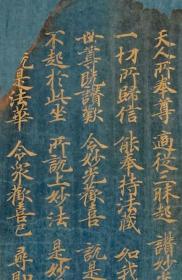 天人所奉尊 適從三昧起 讚妙
一切所歸信 能奉持法藏 如我
世尊既讚歎 令妙光歡喜 說是
不起於此坐 所說上妙法 是妙
說是法華 令衆歡喜已 尋即